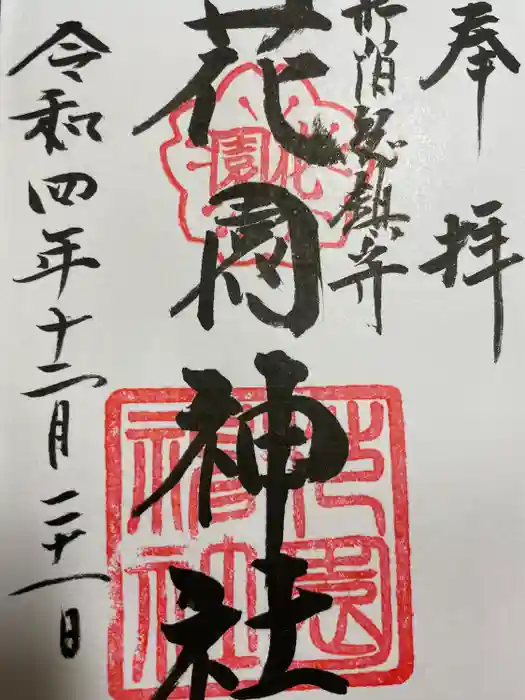 奉拝
新宿総鎮守
花園神社
令和四年十二月二十一日
花園
花園神社